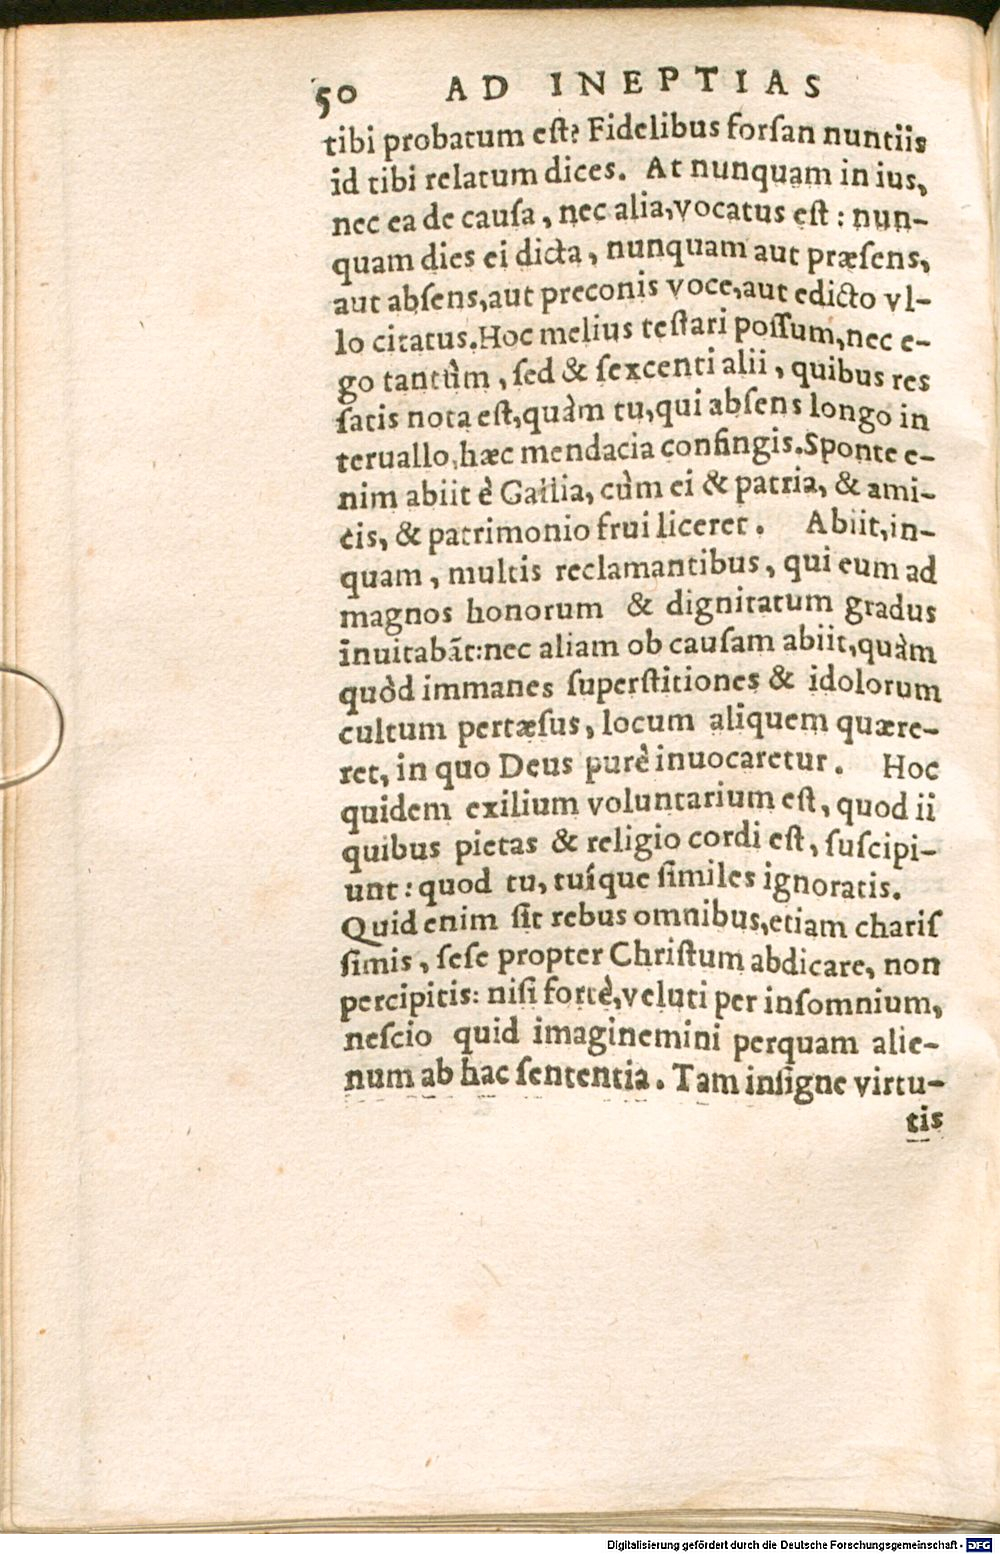 50 AD INEPTIAS
tibi probatum eſt? Fidelibus forſan nuntiis
id tibi relatum dices. At nunquam in ius,
nec ea de cauſa, nec alia, vocatus eſt: nun-
quam dies ei dicta, nunquam aut præſens,
aut abſens, aut preconis voce, aut edicto vl-
lo citatus. Hoc melius teſtari poſſum, nec e-
go tantùm, ſed & ſexcenti alii, quibus res
ſatis nota eſt, quàm tu, qui abſens longo in
teruallo, hæc mendacia confingis. Sponte e-
nim abiit è Gallia, cùm ei & patria, & ami-
cis, & patrimonio frui liceret. Abiit, in-
quam, multis reclamantibus, qui eum ad
magnos honorum & dignitatum gradus
inuitabāt: nec aliam ob cauſam abiit, quàm
quòd immanes ſuperſtitiones & idolorum
cultum pertæſus, locum aliquem quære-
ret, in quo Deus purè inuocaretur. Hoc
quidem exilium voluntarium eſt, quod ii
quibus pietas & religio cordi eſt, ſuſcipi-
unt: quod tu, tuíque ſimiles ignoratis.
Quid enim ſit rebus omnibus, etiam chariſ
ſimis, ſeſe propter Chriſtum abdicare, non
percipitis: niſi fortè, veluti per inſomnium,
neſcio quid imaginemini perquam alie-
num ab hac ſententia. Tam inſigne virtu-
tis
Digitalisierung gefördert durch die Deutsche Forschungsgemeinschaft - DFG